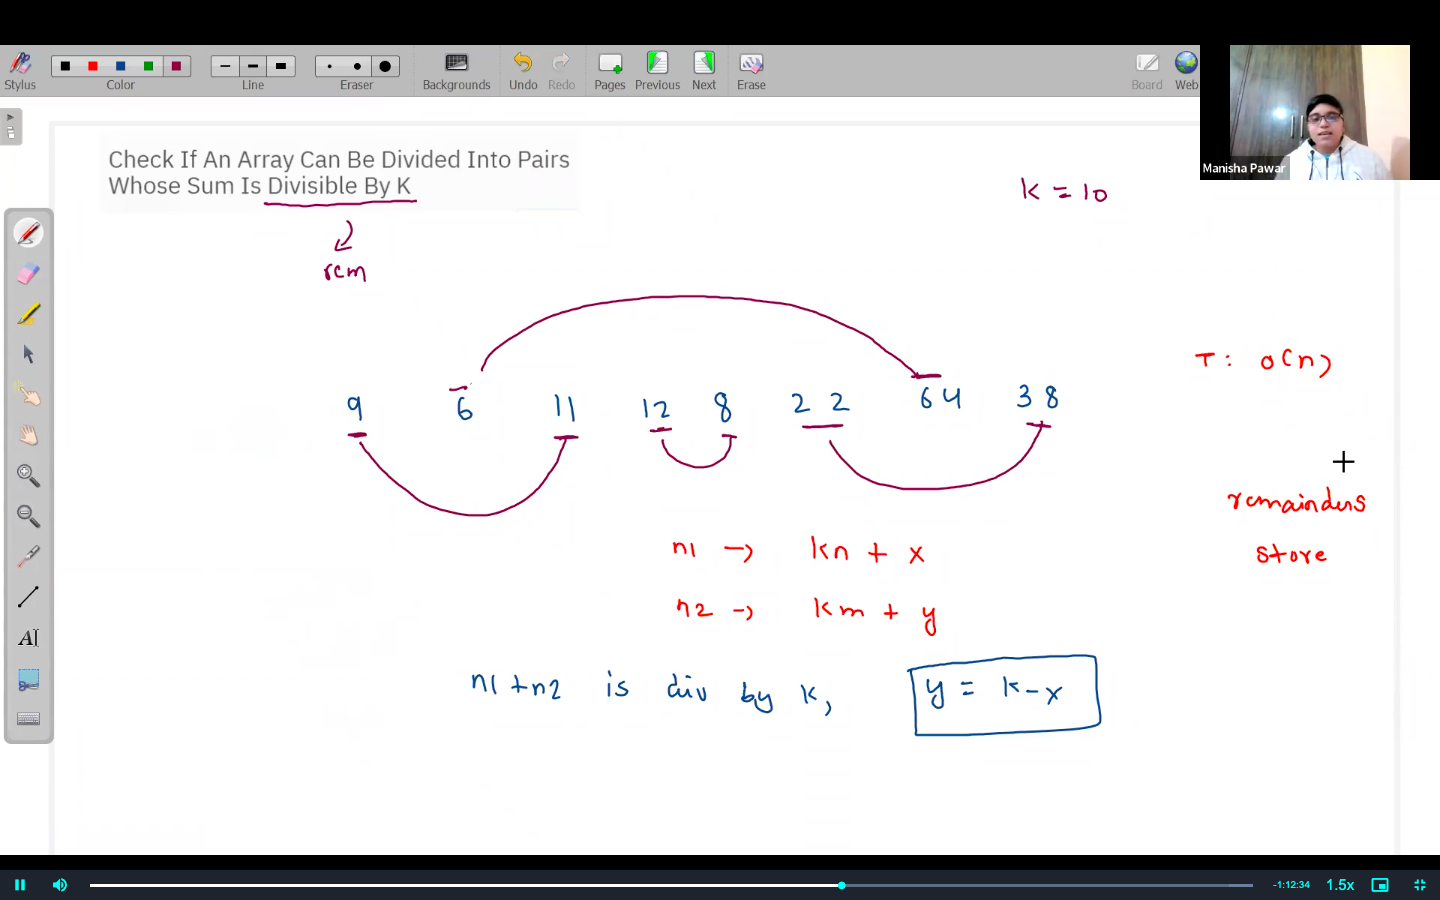 Stylus
Color
Line
Eraser
Backgrounds
Undo
Redo
Pages
Previous
Next
Erase
Board
Web
Manisha Pawar
Check If An Array Can Be Divided Into Pairs
Whose Sum Is Divisible By K
k = 10
rem
T: O(n)
9 6 11 12 8 2 2 64 38
remainders
store
n1 → kn + x
n2 → km + y
n1+n2 is div by k, y = k-x
AI
-1:12:34
1.5x